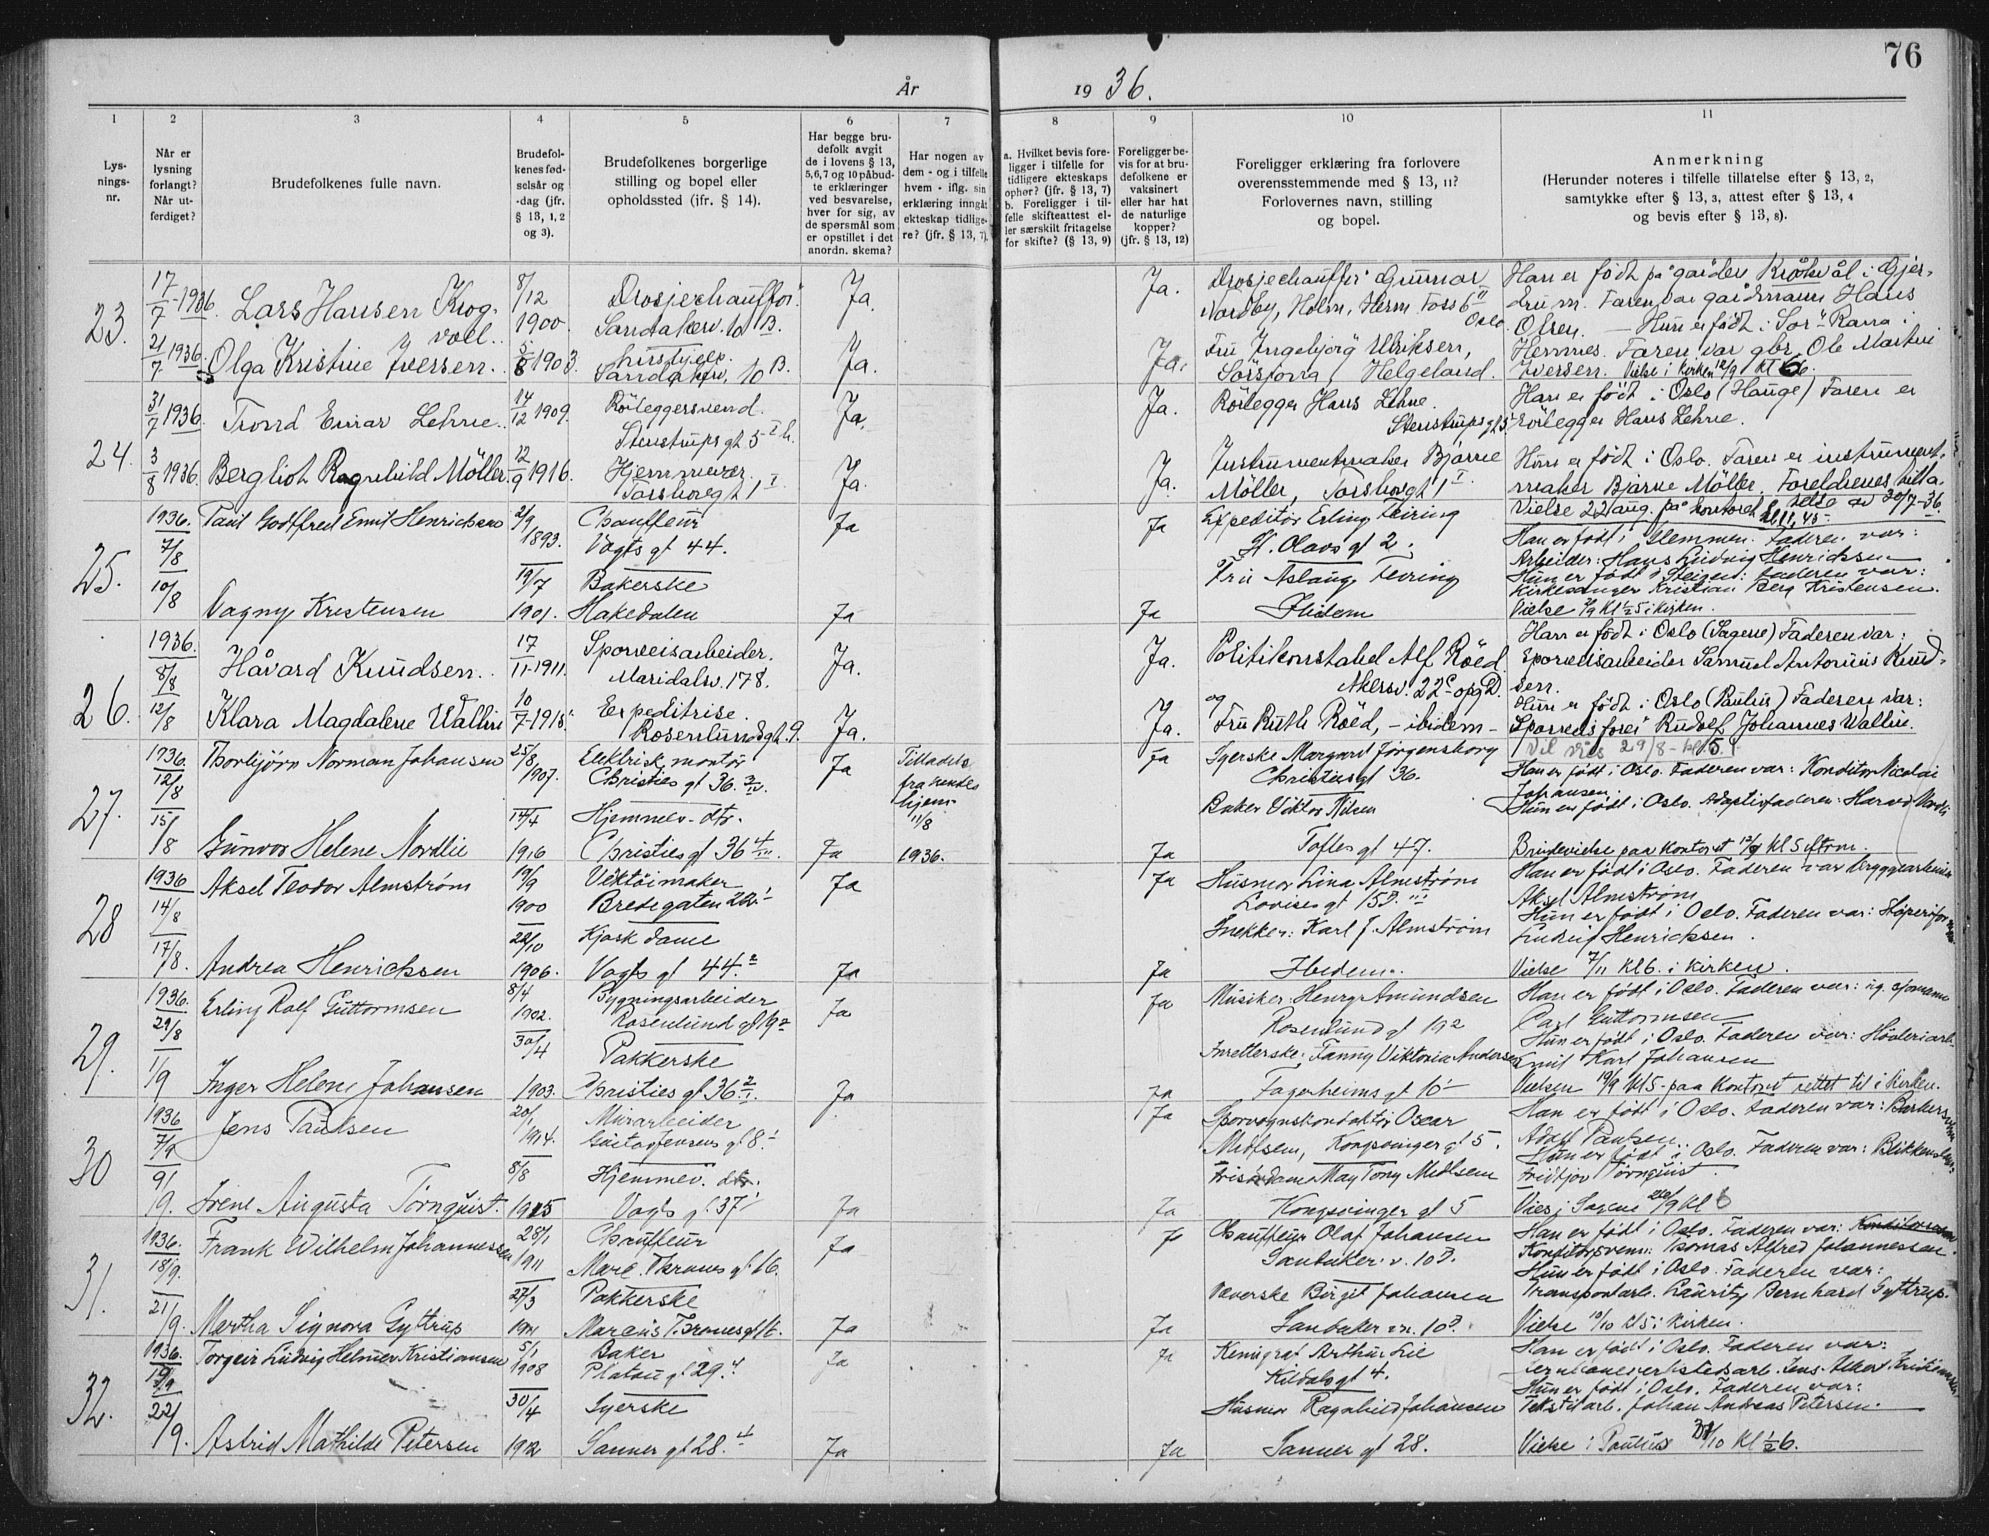 76
År
19 36.
1
2
3
4
5
6
7
8
9
10
11
Lys-
nings-
nr.
Når er
lysning
forlangt?
Når ut-
ferdiget?
Brudefolkenes fulle navn.
Brudefol-
kenes fød-
selsår og
-dag (jfr.
§ 13, 1, 2
og 3).
Brudefolkenes borgerlige
stilling og bopel eller
opholdssted (jfr. § 14).
Har begge bru-
defolk avgit
de i lovens § 13,
5,6,7 og 10 påbud-
te erklæringer
ved besvarelse,
hver for sig, av
de spørsmål som
er opstillet i det
anordn. skema?
Har nogen av
dem - og i tilfelle
hvem - iflg. sin
erklæring inngåt
ekteskap tidlige-
re? (jfr. § 13, 7).
a. Hvilket bevis fore-
ligger i tilfelle for
tidligere ekteskaps
ophør? (jfr. § 13, 7)
b. Foreligger i til-
felle skifteattest el-
ler særskilt fritagelse
for skifte? (§ 13, 9)
Foreligger be-
vis for at bru-
defolkene er
vaksinert
eller har hat
de naturlige
kopper?
(jfr. § 13, 12)
Foreligger erklæring fra forlovere
overensstemmende med § 13, 11?
Forlovernes navn, stilling
og bopel.
Anmerkning
(Herunder noteres i tilfelle tillatelse efter § 13, 2,
samtykke efter § 13, 3, attest efter § 13, 4
og bevis efter § 13, 8).
23.
17/7-1936.
21/7 1936.
Lars Hansen Krog-
voll.
8/12
1900.
Drosjechauffør
Sandakerv. 10 B.
Ja.
Ja.
Drosjechauffør Gunnar
Nordby, Holm, Herm Foss 6 II
Oslo.
Han er født på gården Krokvål i Gjer-
drum. Faren var gårdmann Hans
Olsen. — Hun er født i Sør-Rana i
Olga Kristine Iversen.
5/8 1903.
Sandakerv. 10 B.
Ja.
Ja.
Fru Ingebjørg Ulriksen,
Helgeland.
Hemnes. Faren var gbr. Ole Martin
Iversen. Vielse i kirken 12/9 kl 6.
24.
31/7 1936.
3/8 1936.
Trond Einar Lehne.
14/12 1909.
Rørleggersvend.
Stenstrups gt 5 I h.
Ja.
Ja.
Rørlegger Hans Lehne.
Stenstrupsgt 5.
Han er født i Oslo (Hauge) Faren er
rørlegger Hans Lehne.
Bergliot Ragnhild Möller.
12/9 1916.
Hjemmevær.
Torshovgt 1 I
Ja.
Ja.
Instrumentmaker Bjarne
Möller, Torshovgt 1 I
Hun er født i Oslo. Faren er instrument-
maker Bjarne Möller. Foreldrenes tilla-
telse av 20/7-36.
Vielse 22 aug. på kontoret kl 11,45
25.
1936.
7/8
10/8
Paul Godtfred Emil Henriksen
2/9
1893.
Chauffeur
Vogts gt 44.
Ja
Ja
Expeditør Erling Feiring
St. Olavs gt 2.
Han er født i Glemmen. Faderen var:
Arbeider: Hans Ludvig Henrikssen
Vagny Kristensen
19/7
1901.
Bakerske
Hakedalen
Ja
Ja
Fru Aslaug Feiring
Ibidem
Hun er født i Steigen: faderen var:
Kirkesanger Kristian Berg Kristensen.
Vielse 5/9 kl ½5 i kirken.
26.
1936.
8/8
12/8
Håvard Knudsen.
17
11-1911.
Sporveisarbeider.
Maridalsv. 178.
Ja.
Ja.
Politikonstabel Alf Røed
Akersv. 22c opg D.
og
Han er født i Oslo (Sagene) Faderen var:
Sporveisarbeider Samuel Antonius Knud-
sen.
Klara Magdalene Wallin
10
7-1915.
Expeditrise.
Rosenlundgt. 9.
Ja.
Ja.
Fru Ruth Røed, - ibidem -
Hun er født i Oslo (Paulus) Faderen var:
Rudolf Johannes Wallin.
Vil vies 29/8 - kl 5
27.
1936.
12/8
15/8
Thorbjörn Norman Johansen
25/8
1907.
Elektrisk montør
Christies gt 36.
Ja
Tilladelse
fra hendes
hjem
11/8
1936.
Ja
Syerske Margaret Jørgensborg
Christies gt 36.
Han er født i Oslo. Faderen var: Konditor Nicolai
Johansen.
Gunvor Helene Nordlie
14/4
1916
Hjemmev. dtr.
Christies gt 36
Ja
Ja
Baker Viktor Nilsen
Toftes gt 47.
Hun er født i Oslo. Adoptivfaderen: Harald Nordli
Brudevielse paa kontoret 12/9 kl 5 eftm.
28
1936
14/8
17/8.
Aksel Teodor Almstrøm
19/9
1900
Vektøimaker
Bredegaten
Ja
Ja
Husmor Lina Almstrøm
Lovises gt 15 D. III
Han er født i Oslo. Faderen var Bryggearbeider
Aksel Almstrøm
Andrea Henrichsen
22/10
1906.
Kjosk dame
Vogts gt 44.2
Ja
Ja
Snekker: Karl J. Almstrøm
Ibidem.
Hun er født i Oslo. Faderen var: Støperiformann
Ludvig Henrichsen.
Vielse 7/11 kl 6. i kirken.
29.
1936.
29/8
1/9
Erling Rolf Guttormsen
8/4
1902.
Bygningsarbeider
Rosenlund gt 19 2
Ja
Ja
Musiker: Henry Amundsen
Rosenlund gt 19 2
Han er født i Oslo. Faderen var:
Carl Guttormsen
Inger Helene Johansen
30/4
1903.
Pakkerske
Christies gt 36
Ja
Ja
Fanny Viktoria Andersen
Fagerheims gt 10
Hun er født i Oslo. Faderen var: Høvleriarb.
Emil Karl Johansen
Vielsen 19/9 kl 5 - paa kontoret rettet til i kirken.
30
1936
7/9
9/9.
Jens Paulsen
20/1
1914.
Murarbeider
Gustav Jensens gt 8
Ja
Sporvognskonduktør Oscar
Midtsem, Kongsvinger gt 5.
Han er født i Oslo. Faderen var: Barbersvenn
Adolf Paulsen.
Irene Augusta Törnquist.
8/8
1915
Hjemmev. dtr.
Vogts gt. 37
Ja
Ja
Frisørdame May Tony Midtsem
Kongsvinger gt 5
Hun er født i Oslo. Faderen var: Blikkenslager
Fridtjov Törnquist.
Vies i Sagene 26/9 kl 6
31.
1936.
18/9.
21/9.
Frank Wilhelm Johannessen
28/1
1911
Chauffeur
Marc. Thranes gt. 16.
Ja
Ja
Chauffeur Olaf Johansen
Sanbaker v. 10 D.
Han er født i Oslo. Faderen var:
Konditorsven: Thomas Alfred Johannessen.
Martha Signora Gyttrup
27/3
1911
Pakkerske
Marcus Thranes gt 16.
Ja
Ja
Væverske Birgit Johansen
Sanbaker vn. 10 D.
Hun er født i Oslo. Faderen var:
Transportarb. Lauritz Bernhard Gyttrup.
Vielse 10/10 kl 5 i kirken.
32.
1936.
19/9
22/9.
Torgeir Ludvig Helmer Kristiansen
5/1
1908
Baker
Platous gt 29. 4
Ja
Ja
Kemigraf Arthur Lie
Kildals gt 4.
Han er født i Oslo. Faderen var:
Jernbaneverkstedsarb. Jens Albert Kristiansen
Astrid Mathilde Petersen
30/4
1912
Syerske
Sanner gt 28. 4
Ja
Ja
Husmor Ragnhild Johansen
Sanner gt 28.
Hun er født i Oslo. Faderen var:
Tekstilarb. Johan Andreas Petersen.
Vielse i Paulus 31/10 kl ½6.